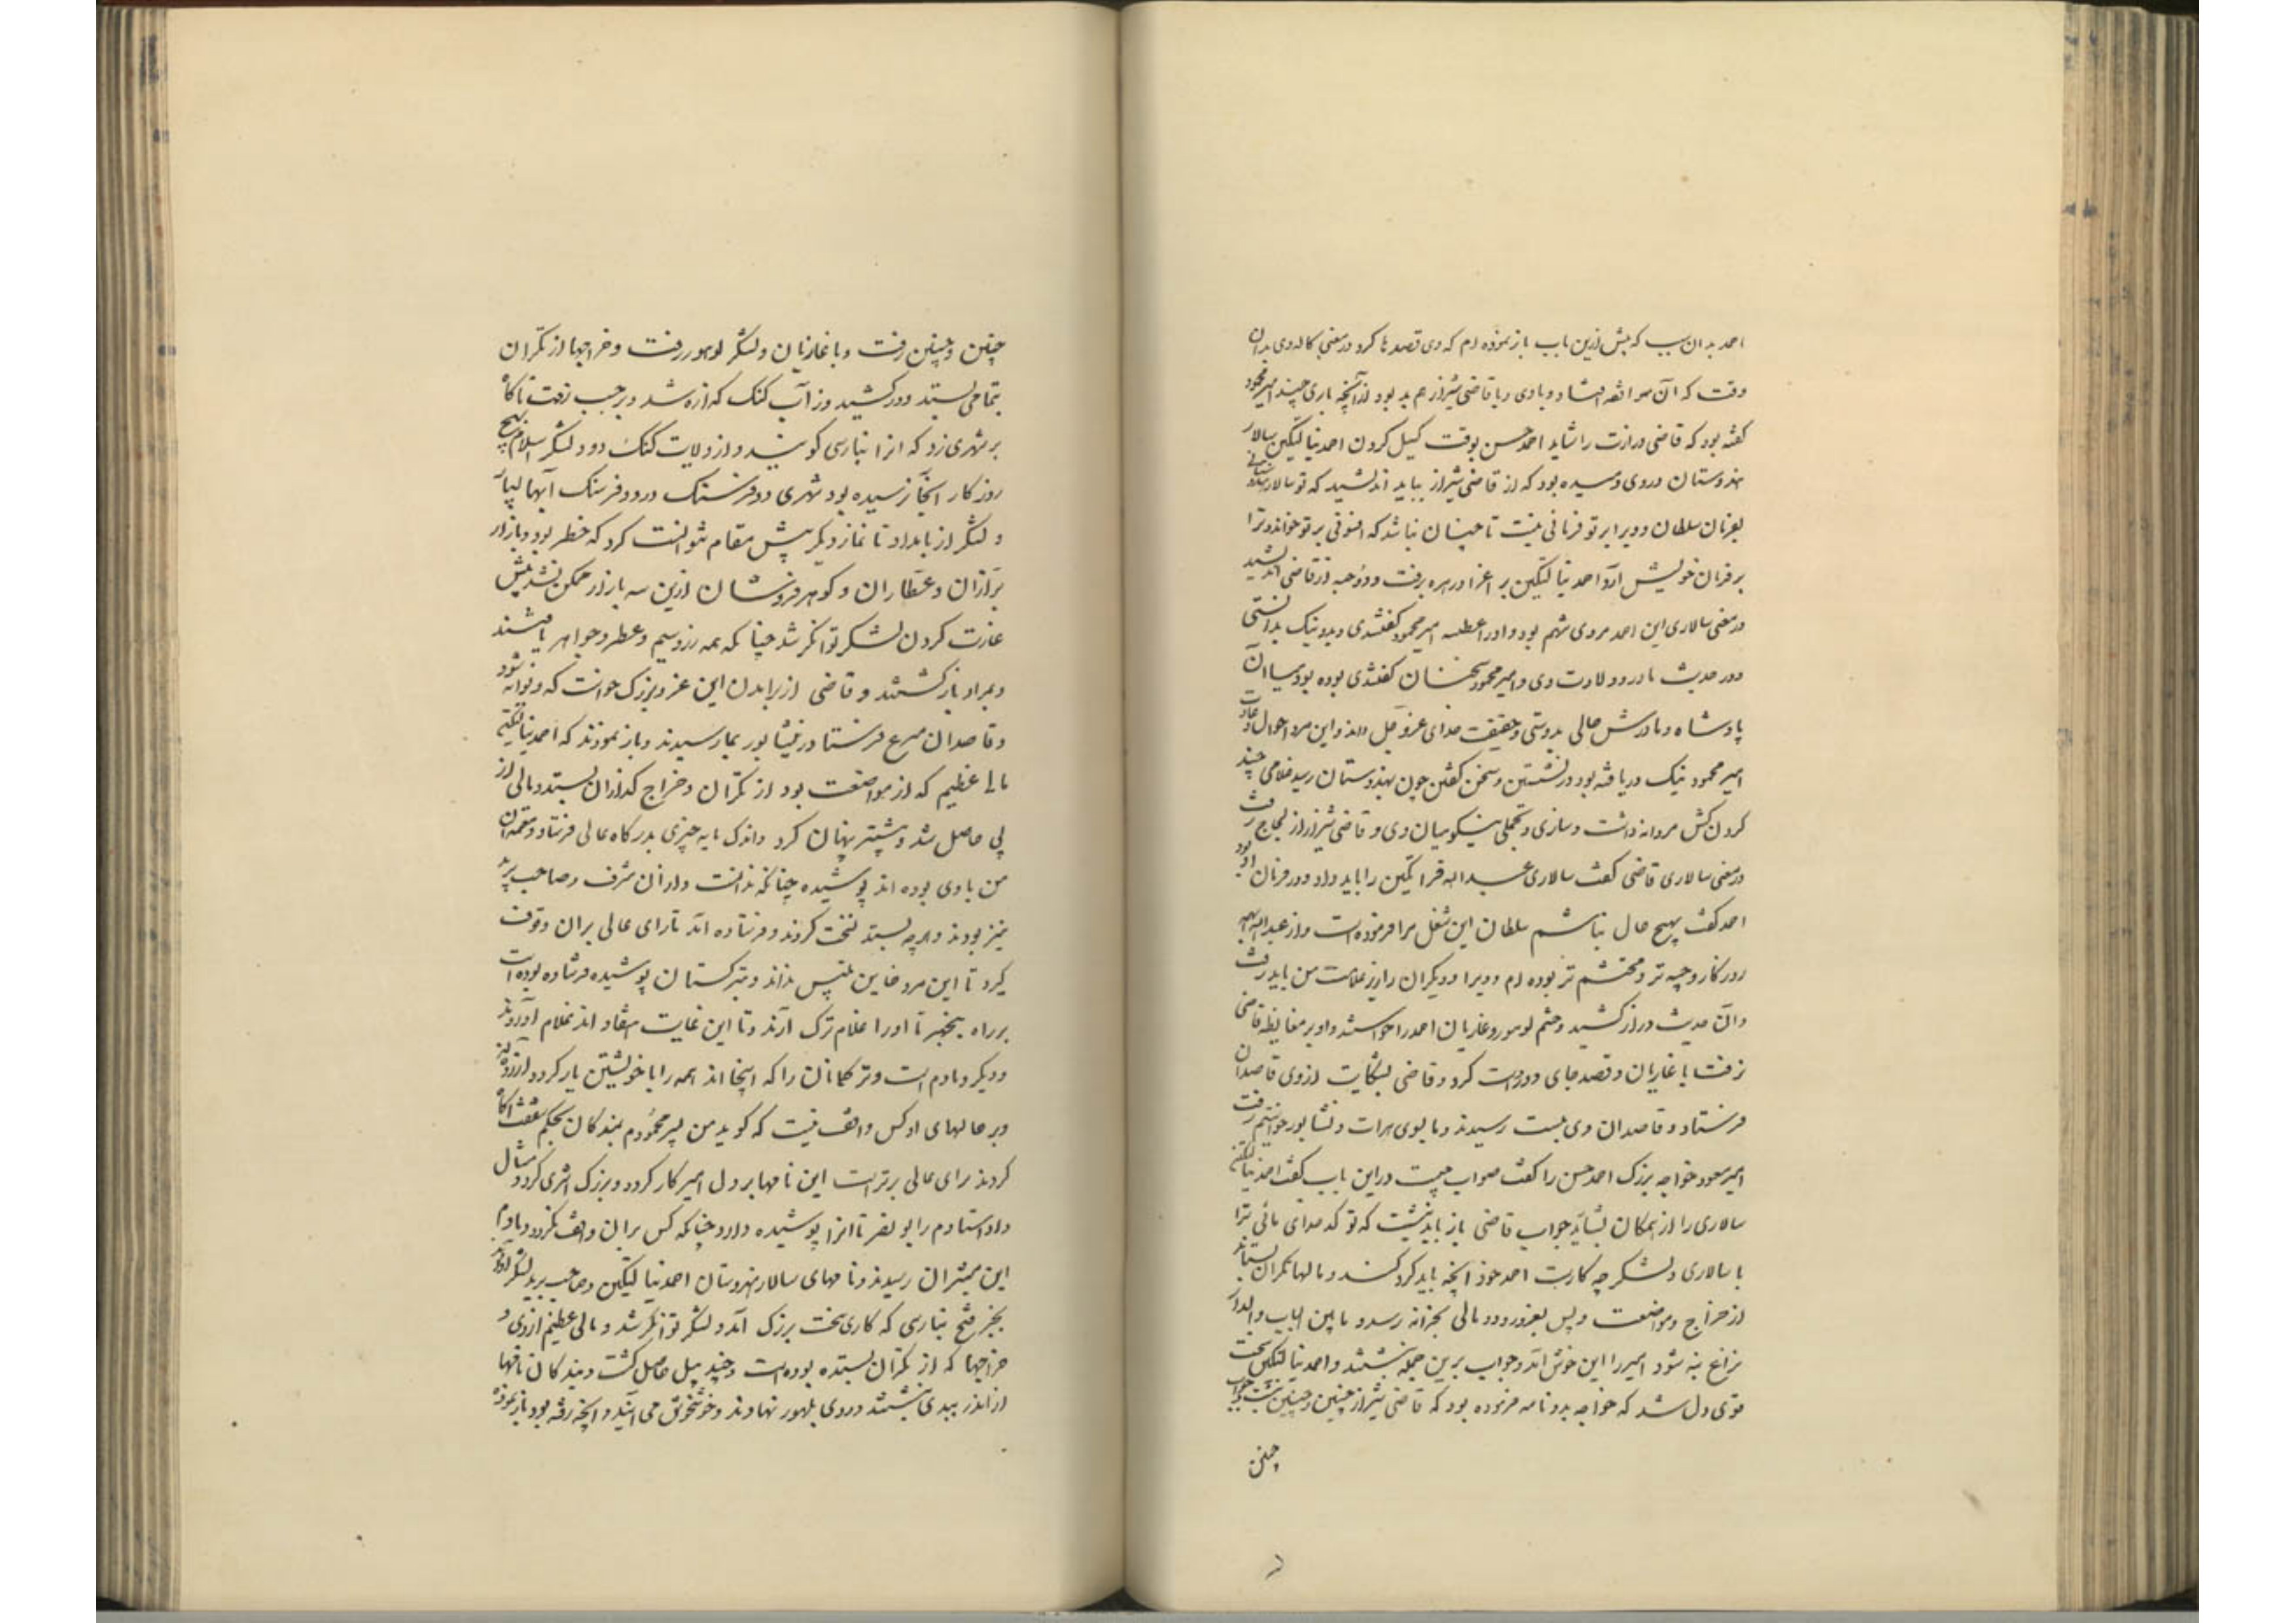 احمد بدان سبب که پیش ازین باب باز نموده ام که وی قصدها کرد در معنی کاله وی بدان
وقت که آن مرافعه افتاد و با وی و با قاضی شیراز هم بد بود از آنچه باری چند امیر محمود
گفته بود که قاضی وزارت را شاید احمد حسن بوقت گسیل کردن احمد نیالتکین سالار
هندوستان در وی دمیده بود که از قاضی شیراز نباید اندیشید که تو سالار هندوستانی
بفرمان سلطان و ویرا بر تو فرمانی نیست تا چنان نباشد که افسونی بر تو خواند و ترا
بر فرمان خویش آرد احمد نیالتکین بر اغرا و زهره برفت و دو حبه از قاضی نه اندیشید
در معنی سالاری این احمد مردی شهم بود و او را عطسه امیر محمود گفتندی و بدو نیک بدانستی
و در حدیث مادر و ولادت وی و امیر محمود سخنان گفتندی بوده بود میان آن
پادشاه و مادرش حالی بدوستی و حقیقت خدای عز و جل داند و این مرد احوال و عادات
امیر محمود نیک دریافته بود در نشستن و سخن گفتن چون بهندوستان رسید غلامی چند
گردن کش مردانه داشت و سازی و تجملی نیکو میان وی و قاضی شیراز لجاج رفت
در معنی سالاری قاضی گفت سالاری عبد الله قراتکین را باید داد و در فرمان او بود
احمد گفت بهیچ حال نباشم سلطان این شغل مرا فرموده است و از عبد الله بهمه
روزگار وجیه تر و محتشم تر بوده ام و ویرا و دیگران را زیر علامت من باید رفت
و آن حدیث دراز کشید و حشم لوهور و غازیان احمد را خواستند و او بر مغایظه قاضی
برفت با غازیان و قصد جای دوردست کرد و قاضی بشکایت از وی قاصدان
فرستاد و قاصدان وی ببست رسیدند و ما بسوی هرات و نشابور خواستیم رفت
امیر مسعود خواجه بزرگ احمد حسن را گفت صواب چیست در این باب گفت احمد نیالتکین
سالاری را از همگان بشاید جواب قاضی باز باید نبشت که تو کدخدای مائی ترا
با سالاری و لشکر چه کارست احمد خود آنچه باید کرد کند و مالهای تکران بستاند
از خراج و مواضعت و پس بغزو رود و مالی بخزانه رسد و ما بین الباب والدار
نزاع بنه شود امیر را این خوش آمد و جواب برین جمله نبشتند و احمد نیالتکین سخت
قوی دل شد که خواجه بدو نامه فرموده بود که قاضی شیراز چنین و چنین نبشت و جواب
چنین
چنین و چنین رفت و با غازیان و لشکر لوهور رفت و خراجها از تکران
بتمامی بستد و درکشید و ز آب گنگ گذاره شد و بر چپ رفت ناگاه
بر شهری زد که آنرا بنارسی گویند و از ولایت گنگ بود و لشکر اسلام بهیچ
روزگار آنجا نرسیده بود شهری دو فرسنگ در دو فرسنگ آبها بسیار
و لشکر از بامداد تا نماز دیگر بیش مقام نتوانست کرد که خطر بود و بازار
بزازان و عطاران و گوهرفروشان ازین سه بازار ممکن نشد بیش
غارت کردن لشکر توانگر شد چنانکه همه زر و سیم و عطر و جواهر یافتند
و بمراد بازگشتند و قاضی از برآمدن این غزو بزرگ خواست که دیوانه شود
و قاصدان مسرع فرستاد در نیشابور بما رسیدند و باز نمودند که احمد نیالتکین
مالی عظیم که از مواضعت بود از تکران و خراج گذاران بستد و مالی از
پی حاصل شد و بیشتر پنهان کرد و اندک مایه چیزی بدرگاه عالی فرستاد و معتمدان
من با وی بوده اند پوشیده چنانکه ندانست و از آن مشرف و صاحب برید
نیز بودند و هرچه بستد نسخت کردند و فرستاده اند تا رای عالی بران وقوف
گیرد تا این مرد خاین تلبیس نداند و بترکستان پوشیده فرستاده بوده است
بر راه پنجهیر تا او را غلام ترک آرند و تا این غایت هفتاد اند غلام آوردند
و دیگر دمادم است و ترکمانان را که اینجااند همه را با خویشتن یار کرد و آزرده اند
و بر حالهای او کس واقف نیست که گوید من پسر محمودم بندگان بحکم شفقت آگاه
کردند رای عالی برترست این نامها بر دل امیر کار کرد و بزرگ اثری کرد و مثال
داد استادم را بو نصر تا آنرا پوشیده دارد چنانکه کس بران واقف نگردد و دمادم
این مبشران رسیدند و نامهای سالار هندوستان احمد نیالتکین و صاحب برید لشکر آوردند
بخبر فتح بنارسی که کاری سخت بزرگ آمد و لشکر توانگر شد و مالی عظیم از وی و
خراجها که از تکران بستده بوده است و چند پیل حاصل گشت و بندگان نامها
از اندر بیدی نبشتند و روی بلهور نهادند و خوش خوش می آیند و آنچه رفته بود باز نمودند